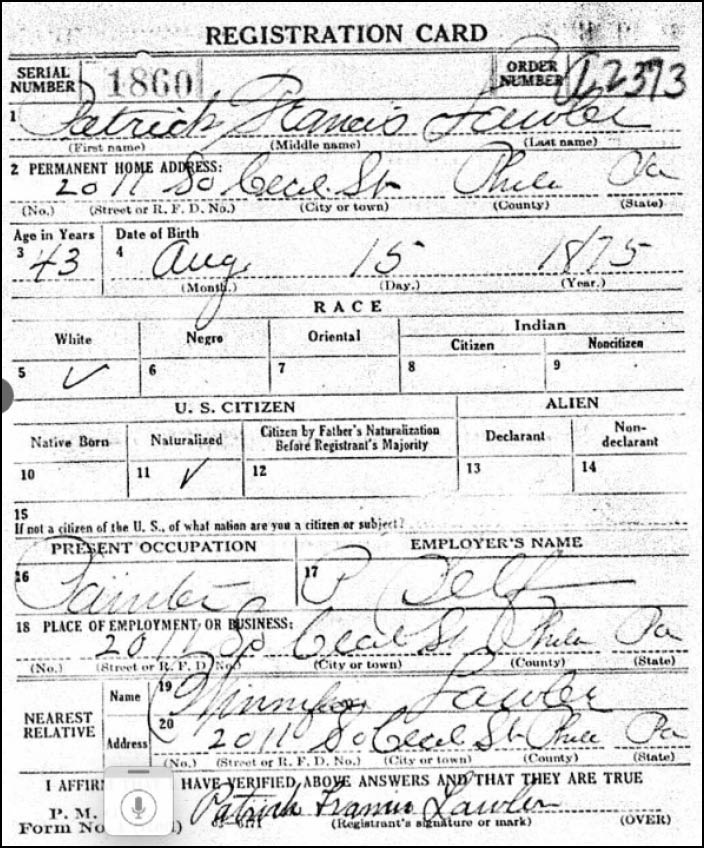 REGISTRATION CARD
SERIAL NUMBER 1860 ORDER NUMBER 12373
1 Patrick Francis Lawler
(First name) (Middle name) (Last name)
2 PERMANENT HOME ADDRESS:
2011 So Cecil St Phila Pa
(No.) (Street or R. F. D. No.) (City or town) (County) (State)
Age in Years Date of Birth
3 43 4 Aug. 15 1875
(Month.) (Day.) (Year.)
RACE
White Negro Oriental Indian
Citizen Noncitizen
5 ✓ 6 7 8 9
U. S. CITIZEN ALIEN
Native Born Naturalized Citizen by Father's Naturalization Before Registrant's Majority Declarant Non-declarant
10 11 ✓ 12 13 14
15
If not a citizen of the U. S., of what nation are you a citizen or subject?
PRESENT OCCUPATION EMPLOYER'S NAME
16 Painter 17
18 PLACE OF EMPLOYMENT OR BUSINESS:
2011 So Cecil St Phila Pa
(No.) (Street or R. F. D. No.) (City or town) (County) (State)
NEAREST RELATIVE
Name 19 Lawler
Address 20 2011 So Cecil St Phila Pa
(No.) (Street or R. F. D. No.) (City or town) (County) (State)
I AFFIRM HAVE VERIFIED ABOVE ANSWERS AND THAT THEY ARE TRUE
P. M. Patrick Francis Lawler
Form No (Registrant's signature or mark) (OVER)